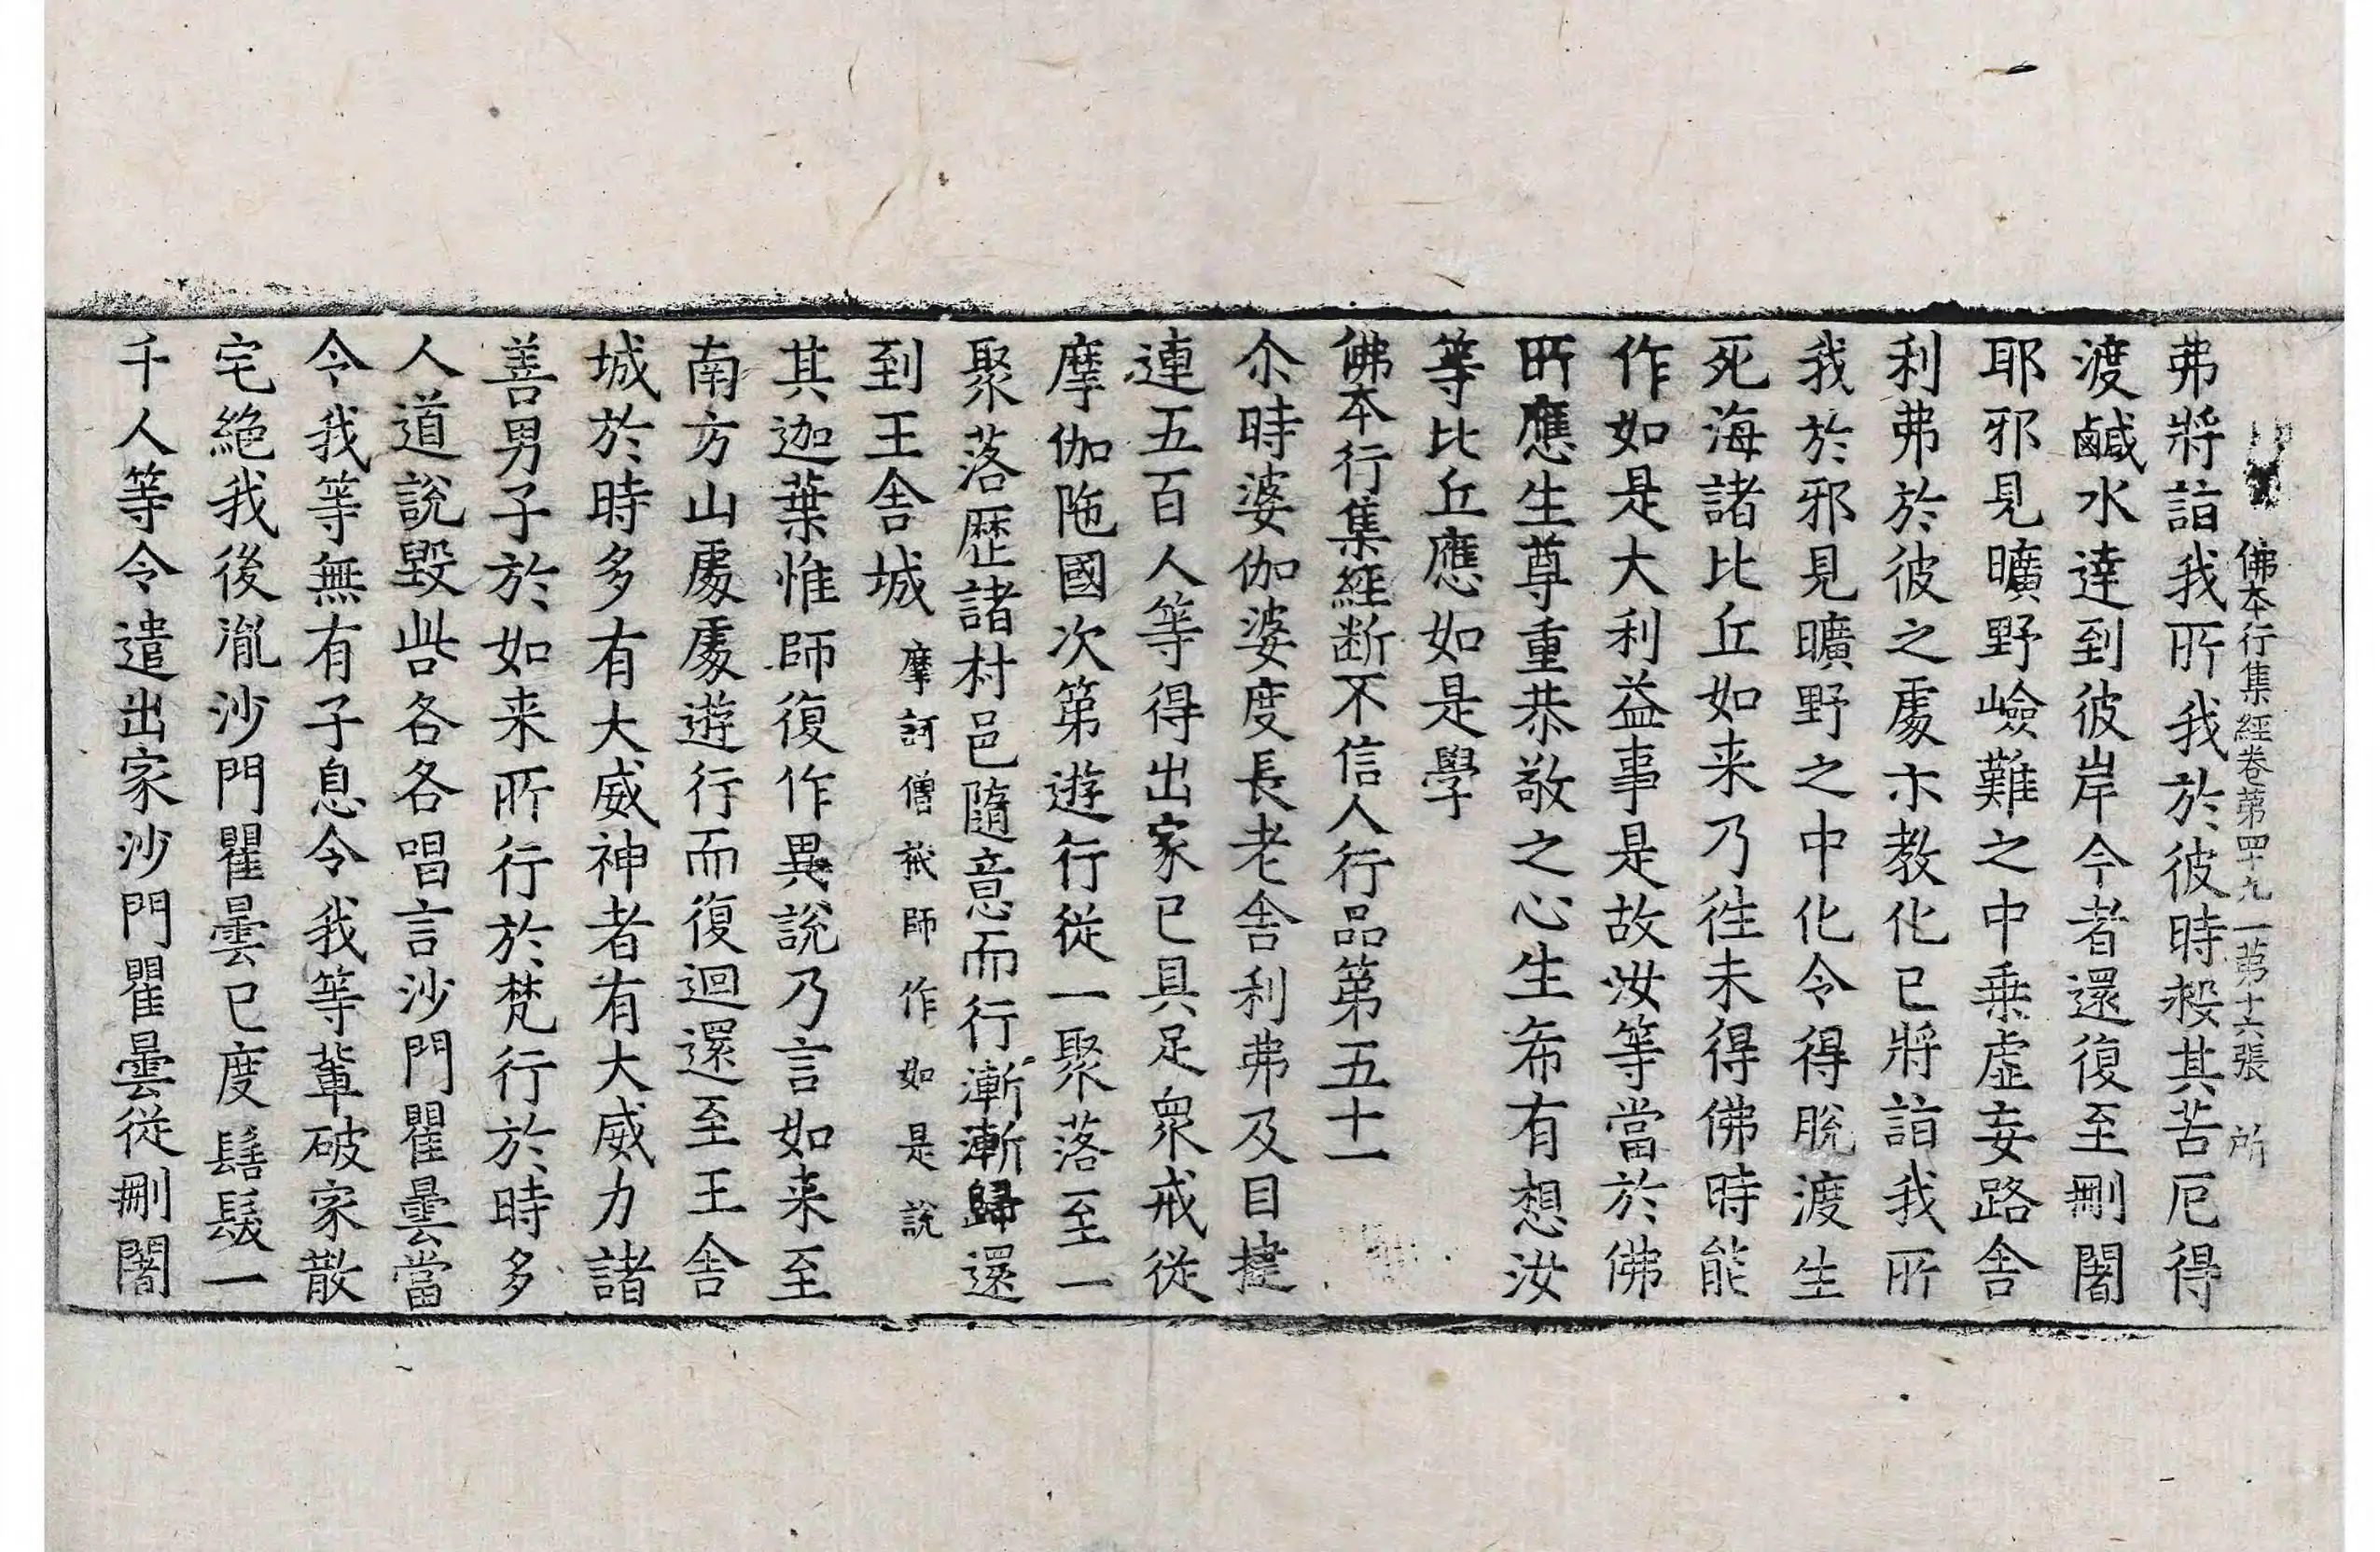 佛本行集經卷第四十九　第十六張　所
弗將詣我所我於彼時救其苦厄得
渡鹹水達到彼岸今者還復至刪闍
耶邪見曠野嶮難之中乗虛妄路舍
利弗於彼之處亦教化已將詣我所
我於邪見曠野之中化令得脫渡生
死海諸比丘如来乃往未得佛時能
作如是大利益事是故汝等當於佛
所應生尊重恭敬之心生希有想汝
等比丘應如是學
佛本行集經断不信人行品第五十一
尒時婆伽婆度長老舍利弗及目揵
連五百人等得出家已具足衆戒從
摩伽陁國次第遊行從一聚落至一
聚落歷諸村邑隨意而行漸漸歸還
到王舍城摩訶僧祇師作如是說
其迦葉惟師復作異說乃言如来至
南方山處處遊行而復迴還至王舍
城於時多有大威神者有大威力諸
善男子於如来所行於梵行於時多
人道說毀呰各各唱言沙門瞿曇當
令我等無有子息令我等輩破家散
宅絕我後胤沙門瞿曇已度髻髮一
千人等令遣出家沙門瞿曇從刪闍